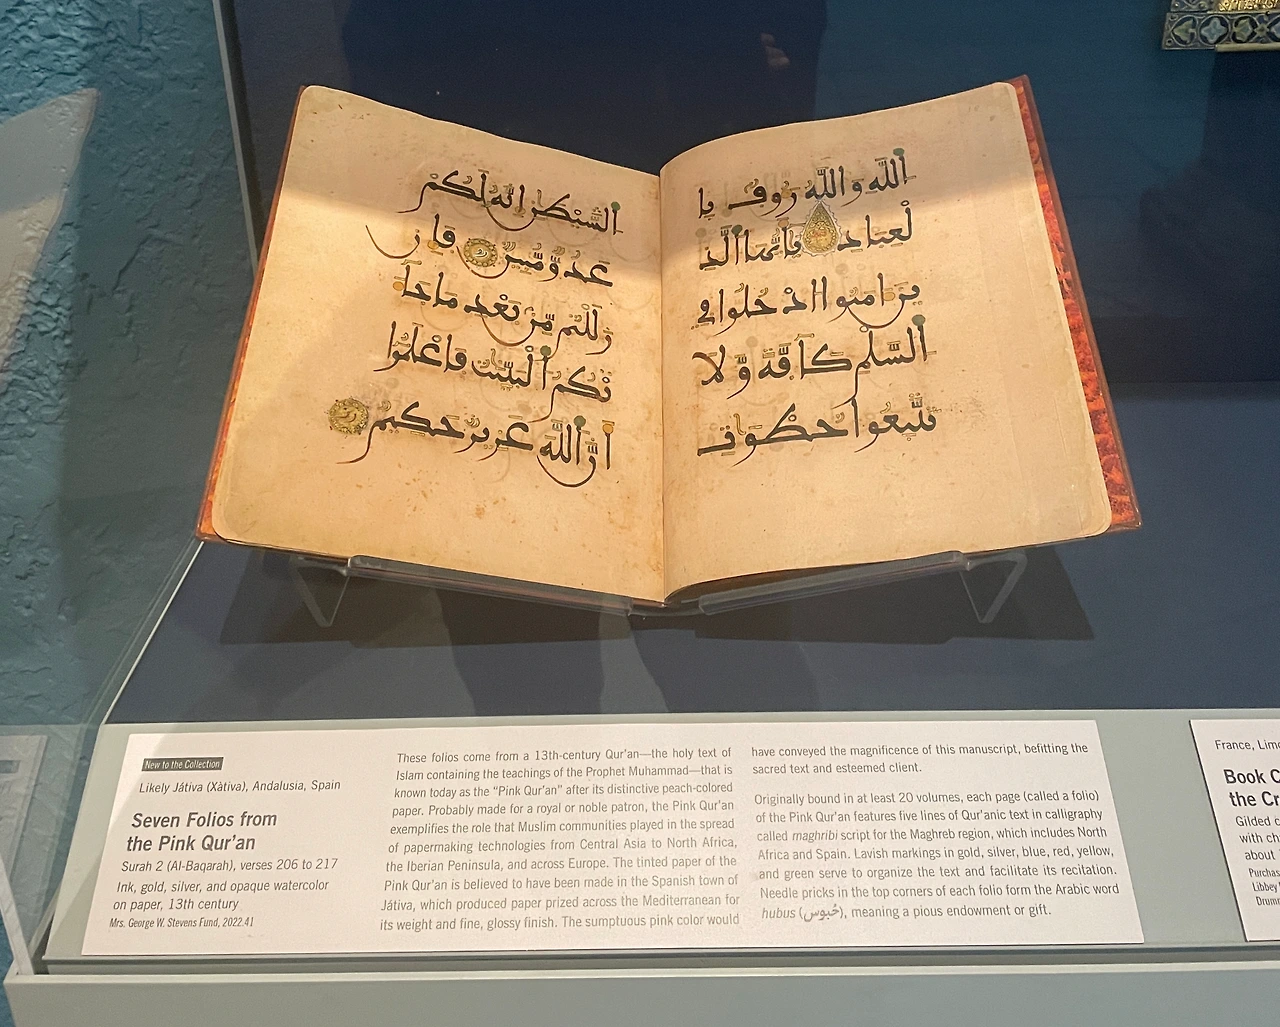 اَللَّهِ وَاللَّهُ رَوُفٌ بِا
لْعِبَادِ يَأَيُّهَا اَلَّذِ
ينَ ءامَنُوا ادْخُلُوا فِي
اَلسَّلْمِ كَآفَّةً وَّلَا
تَتَّبِعُوا خُطُوَتِ
اَلشَّيْطَنِ إِنَّهُ لَكُمْ
عَدُوٌّ مُّبِينٌ فَإِن زَ
لَلْتُم مِّن بَعْدِ مَا جَآءَ
تْكُمُ اَلْبَيِّنَتُ فَاعْلَمُوا
أَنَّ اَللَّهَ عَزِيزٌ حَكِيمٌ
New to the Collection
Likely Játiva (Xàtiva), Andalusia, Spain
Seven Folios from
the Pink Qur'an
Surah 2 (Al-Baqarah), verses 206 to 217
Ink, gold, silver, and opaque watercolor
on paper, 13th century
Mrs. George W. Stevens Fund, 2022.41
These folios come from a 13th-century Qur'an—the holy text of
Islam containing the teachings of the Prophet Muhammad—that is
known today as the "Pink Qur'an" after its distinctive peach-colored
paper. Probably made for a royal or noble patron, the Pink Qur'an
exemplifies the role that Muslim communities played in the spread
of papermaking technologies from Central Asia to North Africa,
the Iberian Peninsula, and across Europe. The tinted paper of the
Pink Qur'an is believed to have been made in the Spanish town of
Játiva, which produced paper prized across the Mediterranean for
its weight and fine, glossy finish. The sumptuous pink color would
have conveyed the magnificence of this manuscript, befitting the
sacred text and esteemed client.
Originally bound in at least 20 volumes, each page (called a folio)
of the Pink Qur'an features five lines of Qur'anic text in calligraphy
called maghribi script for the Maghreb region, which includes North
Africa and Spain. Lavish markings in gold, silver, blue, red, yellow,
and green serve to organize the text and facilitate its recitation.
Needle pricks in the top corners of each folio form the Arabic word
hubus (حُبوس), meaning a pious endowment or gift.
France, Limo
Book C
the Cr
Gilded c
with ch
about
Purchas
Libbey
Drumm